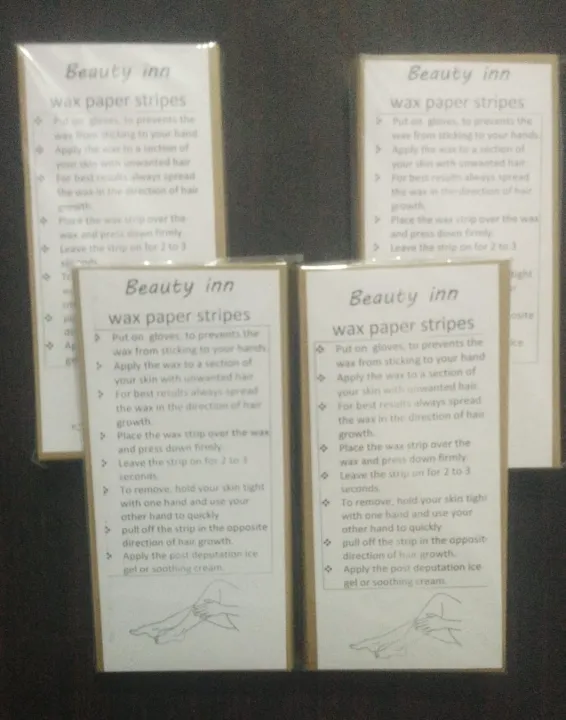 Beauty inn
wax paper stripes
Put on gloves, to prevents the
wax from sticking to your hand
Apply the wax to a section of
your skin with unwanted hair
For best results always spread
the wax in the direction of hair
growth.
Place the wax strip over the
wax and press down firmly.
Leave the strip on for 2 to 3
Beauty inn
wax paper stripes
Put on gloves, to prevents the
wax from sticking to your hands
Apply the wax to a section of
your skin with unwanted hair
For best results always spread
the wax in the direction of hair
growth.
Place the wax strip over the wax
and press down firmly.
Leave the strip on for 2 to 3
tight
Beauty inn
wax paper stripes
Put on gloves, to prevents the
wax from sticking to your hands
Apply the wax to a section of
your skin with unwanted hair
For best results always spread
the wax in the direction of hair
growth.
Place the wax strip over the wax
and press down firmly.
Leave the strip on for 2 to 3
seconds.
To remove, hold your skin tight
with one hand and use your
other hand to quickly
pull off the strip in the opposite
direction of hair growth.
Apply the post deputation ice
gel or soothing cream.
Beauty inn
wax paper stripes
Put on gloves, to prevents the
wax from sticking to your hand
Apply the wax to a section of
your skin with unwanted hair
For best results always spread
the wax in the direction of hair
growth.
Place the wax strip over the
wax and press down firmly.
Leave the strip on for 2 to 3
seconds.
To remove, hold your skin tight
with one hand and use your
other hand to quickly
pull off the strip in the opposit
direction of hair growth.
Apply the post deputation ice
gel or soothing cream.